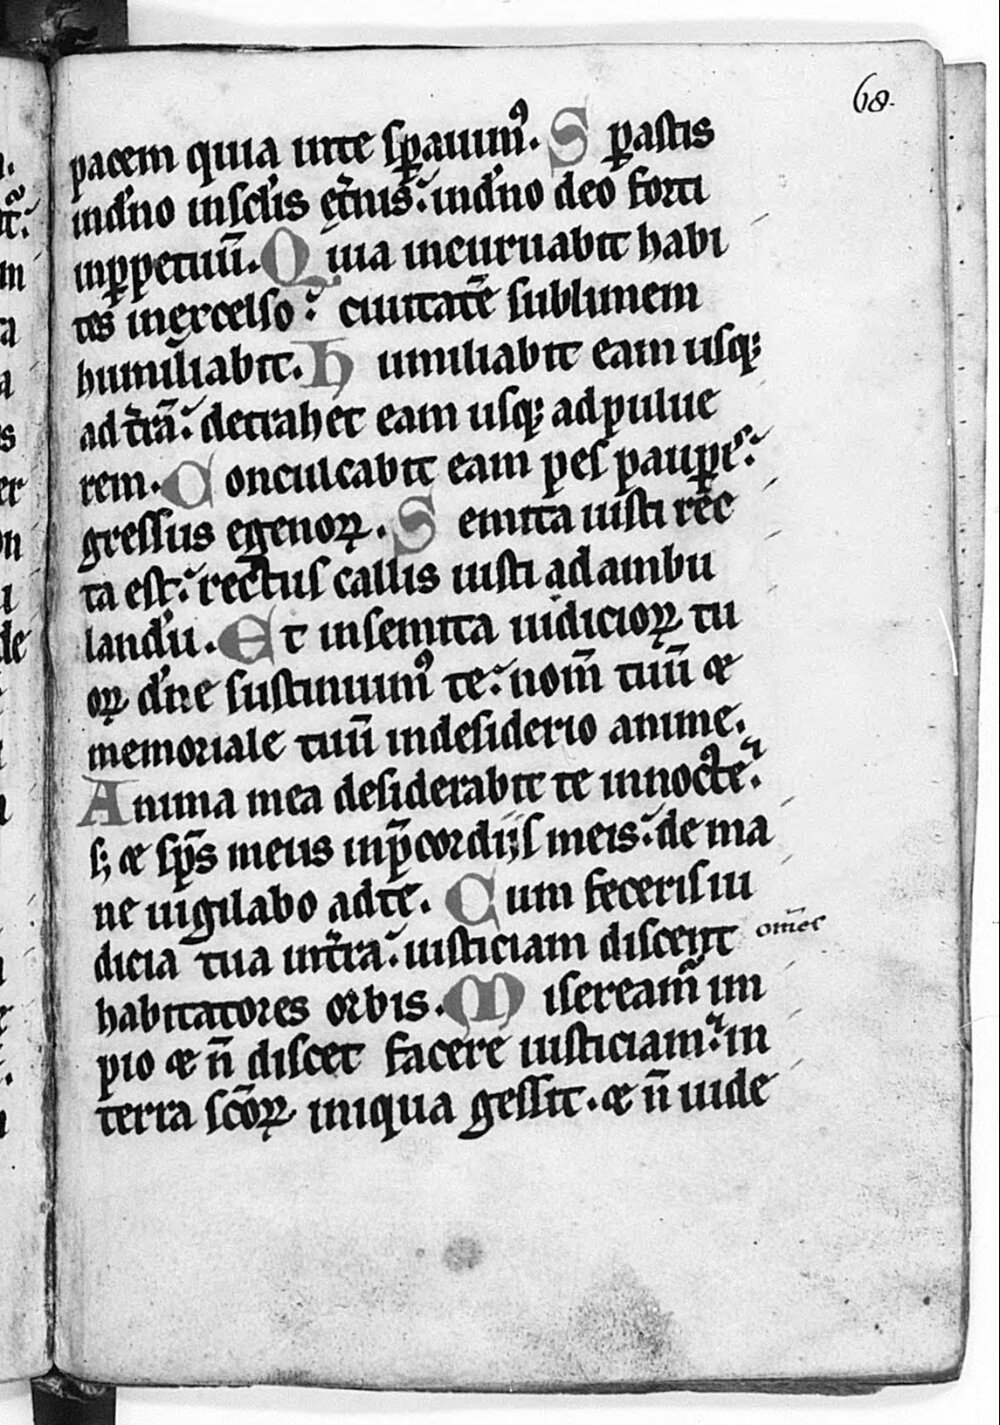 68.
pacem quia inte sꝑauimꝰ. S ꝑastis
indn̄o insc̄lis et̄nis: indn̄o deo forti
inꝑpetuū. Quia incuruabit habi
tes inexcelso: ciuitatē sublimem
humiliabit. Humiliabit eam usq;
ad tr̄ā: detrahet eam usq; adpulue
rem. Conculcabit eam pes pauꝑis:
gressus egenoꝝ. Semita iusti rec
ta est: rectus callis iusti ad ambu
landū. Et insemita iudicioꝝ tu
oꝝ dn̄e sustinuimꝰ te: nom̄ tuū &
memoriale tuū indesiderio anime.
Anima mea desiderabit te innocte:
s; & sp̄s meus inp̄cordiis meis: de ma
ne uigilabo adte. Cum feceris iu
dicia tua intr̄ra: iusticiam discent omēs
habitatores orbis. Miseream̄ im
pio & n̄ discet facere iusticiam: in
terra sc̄oꝝ iniqua gessit. & n̄ uide